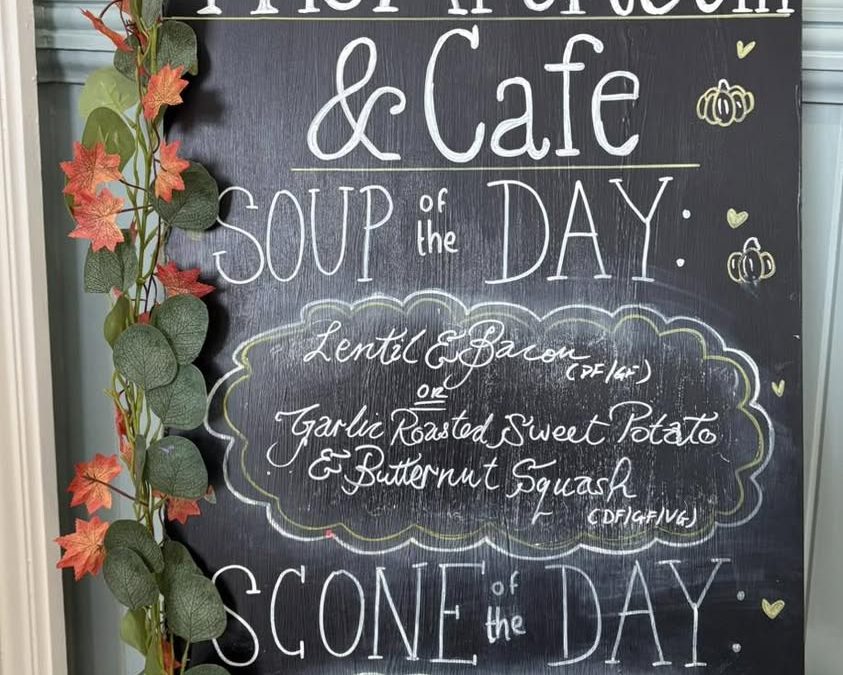 & Cafe
SOUP of the DAY:
Lentil & Bacon
(DF/GF)
OR
Garlic Roasted Sweet Potato
& Butternut Squash
(DF/GF/VG)
SCONE of the DAY: